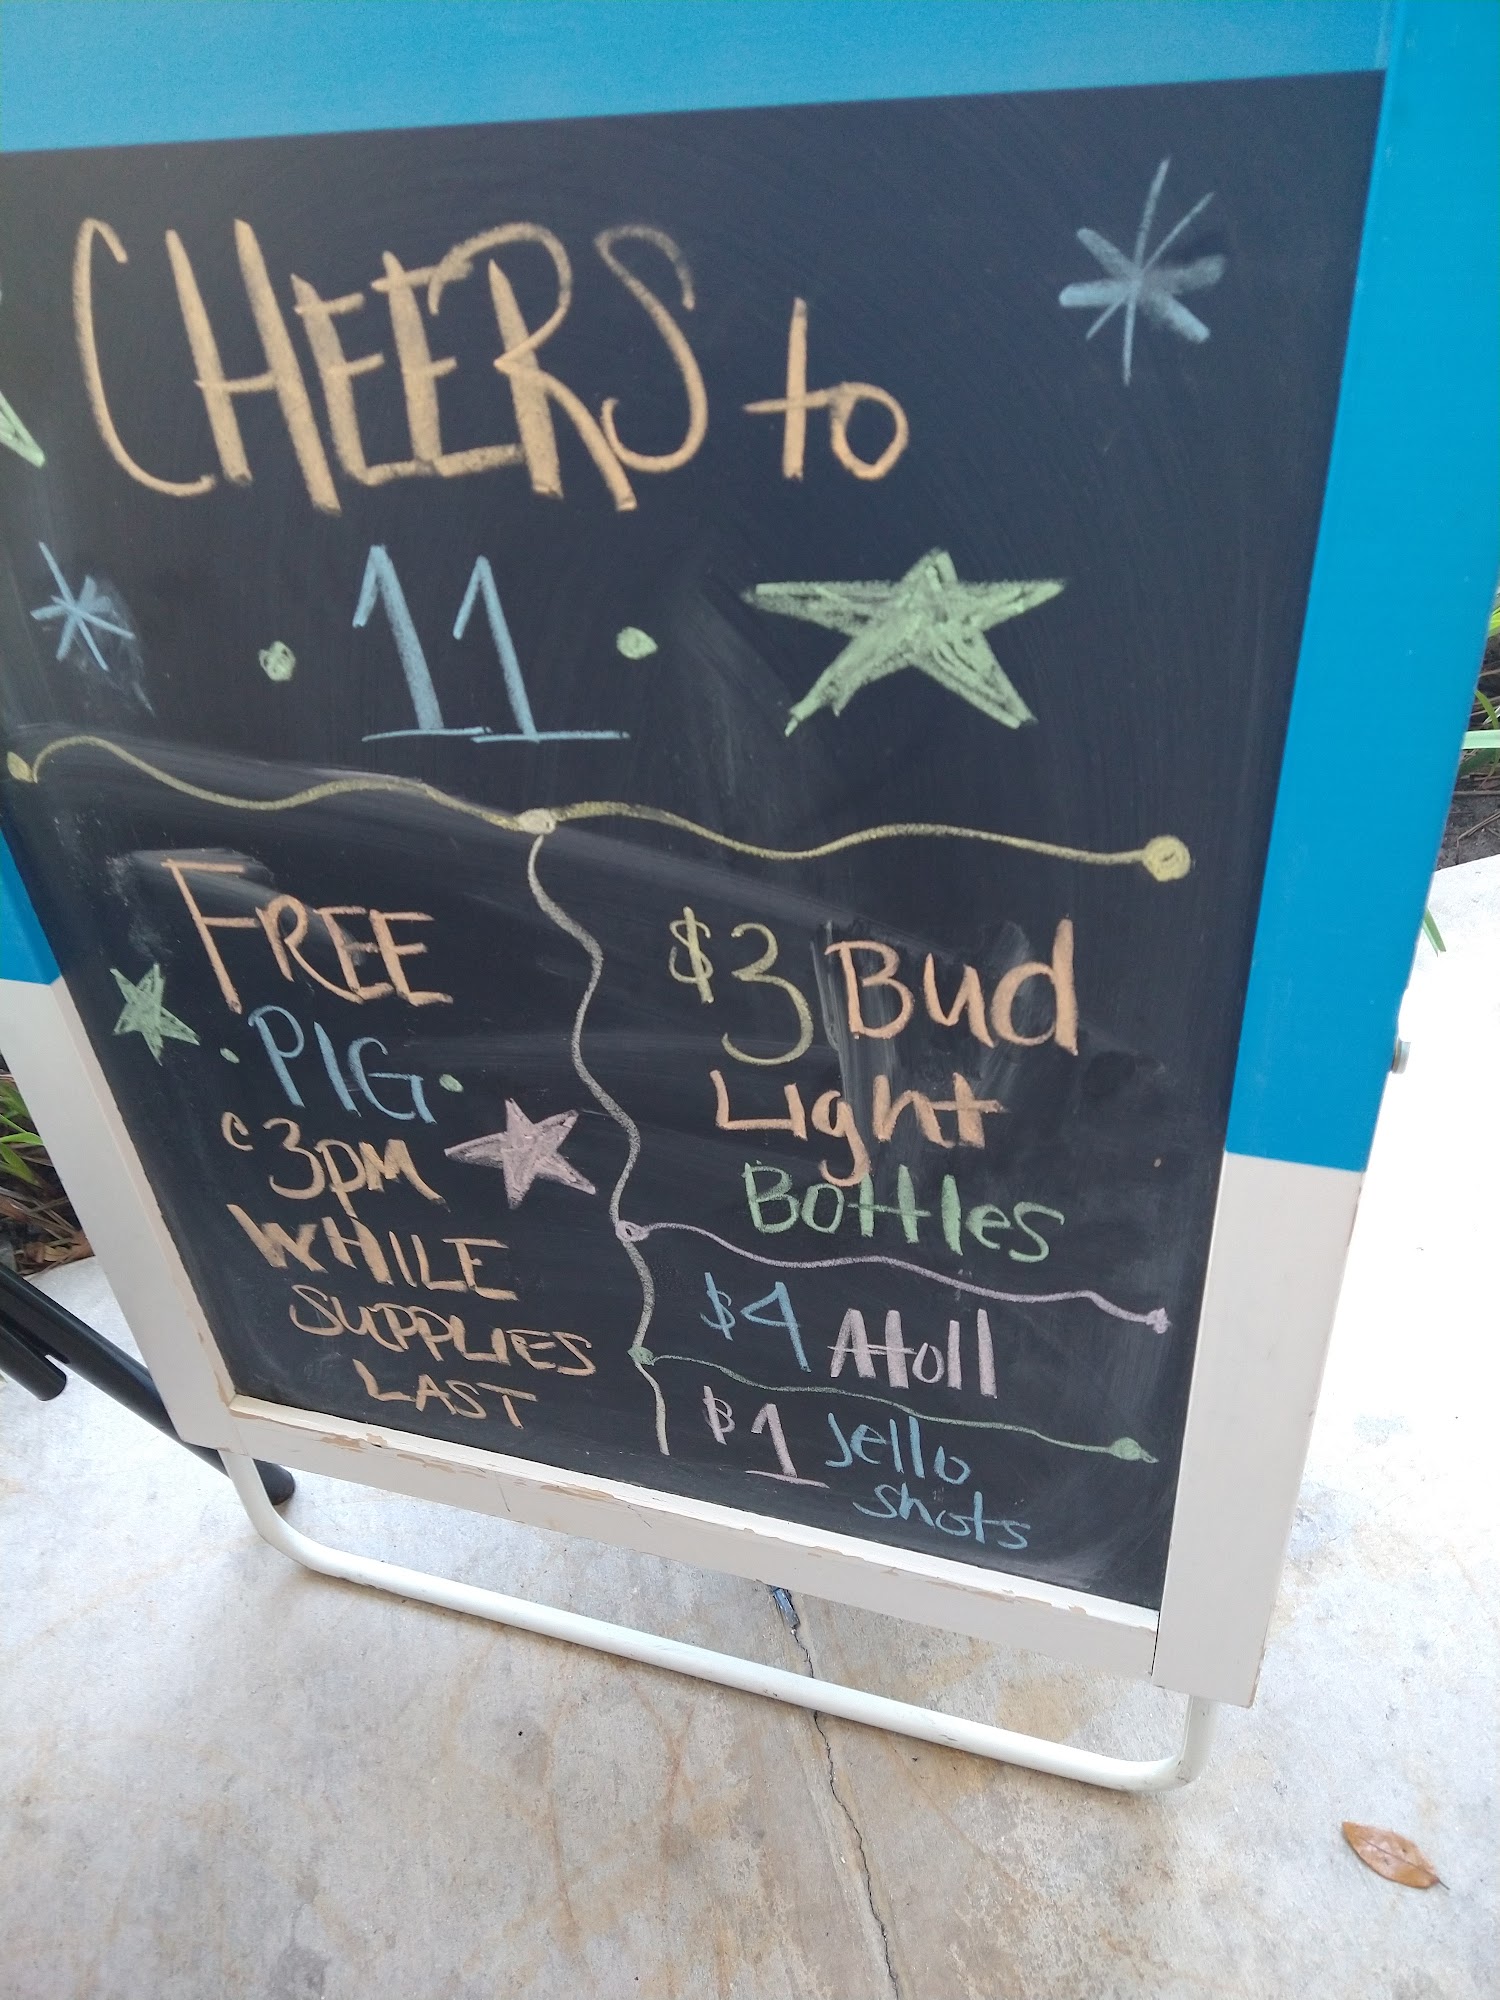 CHEERS to
11
FREE
PIG
@ 3pm
WHILE
SUPPLIES
LAST
$3 Bud
Light
Bottles
$4 Atoll
$1 Jello
shots